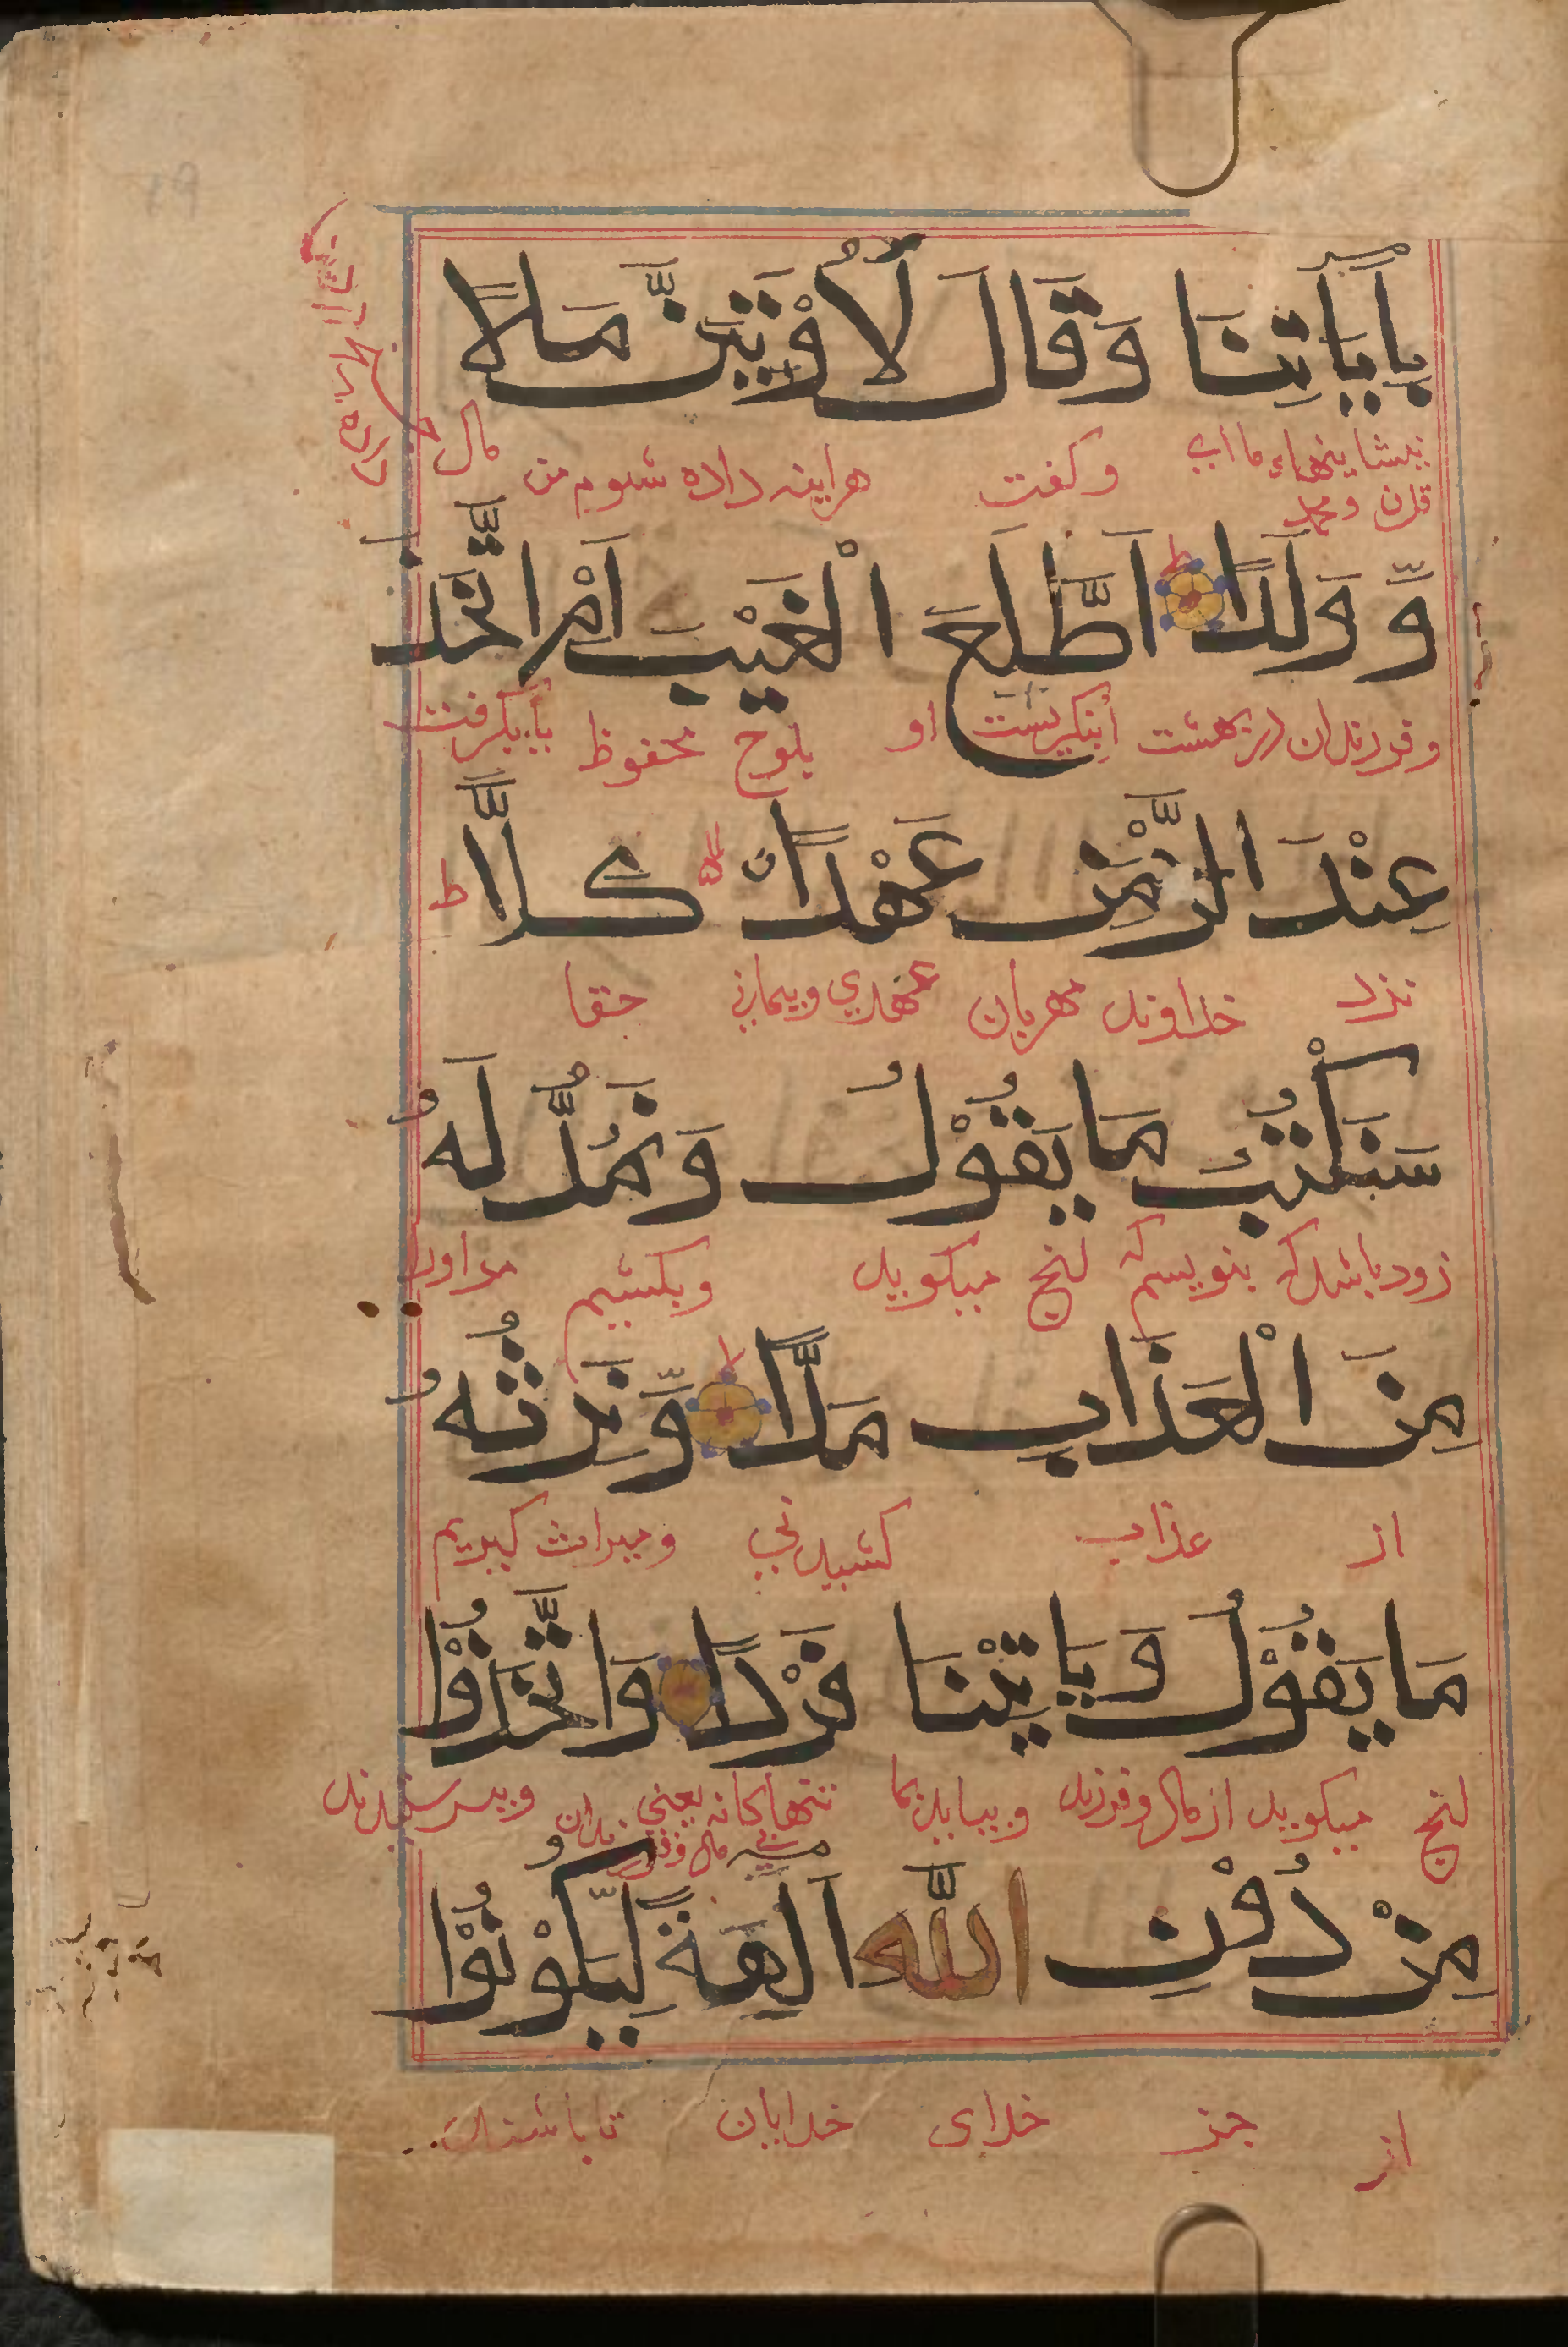 بِاٰيَاتِنَا وَقَالَ لَاُوْتَيَنَّ مَالًا
بنشانیهاء ما ای وکفت هراینه داده شوم من مال
قران ومحمد
وَّوَلَدًا ط اَطَّلَعَ الْغَيْبَ اَمِ اتَّخَذَ
وفرزندان در بهشت أبنکریست او بلوح محفوظ یا بکرفت
عِنْدَ الرَّحْمٰنِ عَهْدًا كَلَّا ط
نزد خداوند مهربان عهدی وپیمانی حقا
سَنَكْتُبُ مَا يَقُوْلُ وَنَمُدُّ لَهٗ
زود باشد که بنویسم که انج میکوید وبکشیم مر اورا
مِنَ الْعَذَابِ مَدًّا لا وَّنَرِثُهٗ
از عذاب کشیدنی ومیراث کیریم
مَا يَقُوْلُ وَيَاْتِيْنَا فَرْدًا وَاتَّخَذُوْا
انج میکوید از مال وفرزند وبیاید بما تنها کانه یعنی وپرستیدند
بی مال وفرزندان
مِنْ دُوْنِ اللّٰهِ اٰلِهَةً لِّيَكُوْنُوْا
از جز خدای خدایان تا باشند